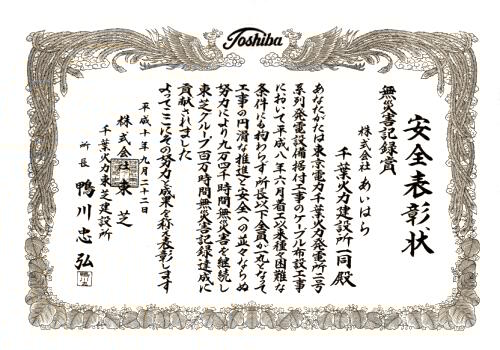 Toshiba
安全表彰状
無災害記録賞
株式会社 あいはら
千葉火力建設所一同殿
あなたがたは東京電力千葉火力発電所二号
系列発電設備据付工事のケーブル布設工事
において平成八年六月着工以来種々困難な
条件にも拘わらず所長以下全員が一丸となって
工事の円滑な推進と安全への並々ならぬ
努力により九万四千時間無災害を継続し
東芝グループ百万時間無災害記録達成に
貢献されました
よってここにその努力と成果を称え表彰します
平成十年九月二十二日
株式会社 東芝
千葉火力東芝建設所
所長 鴨川忠弘